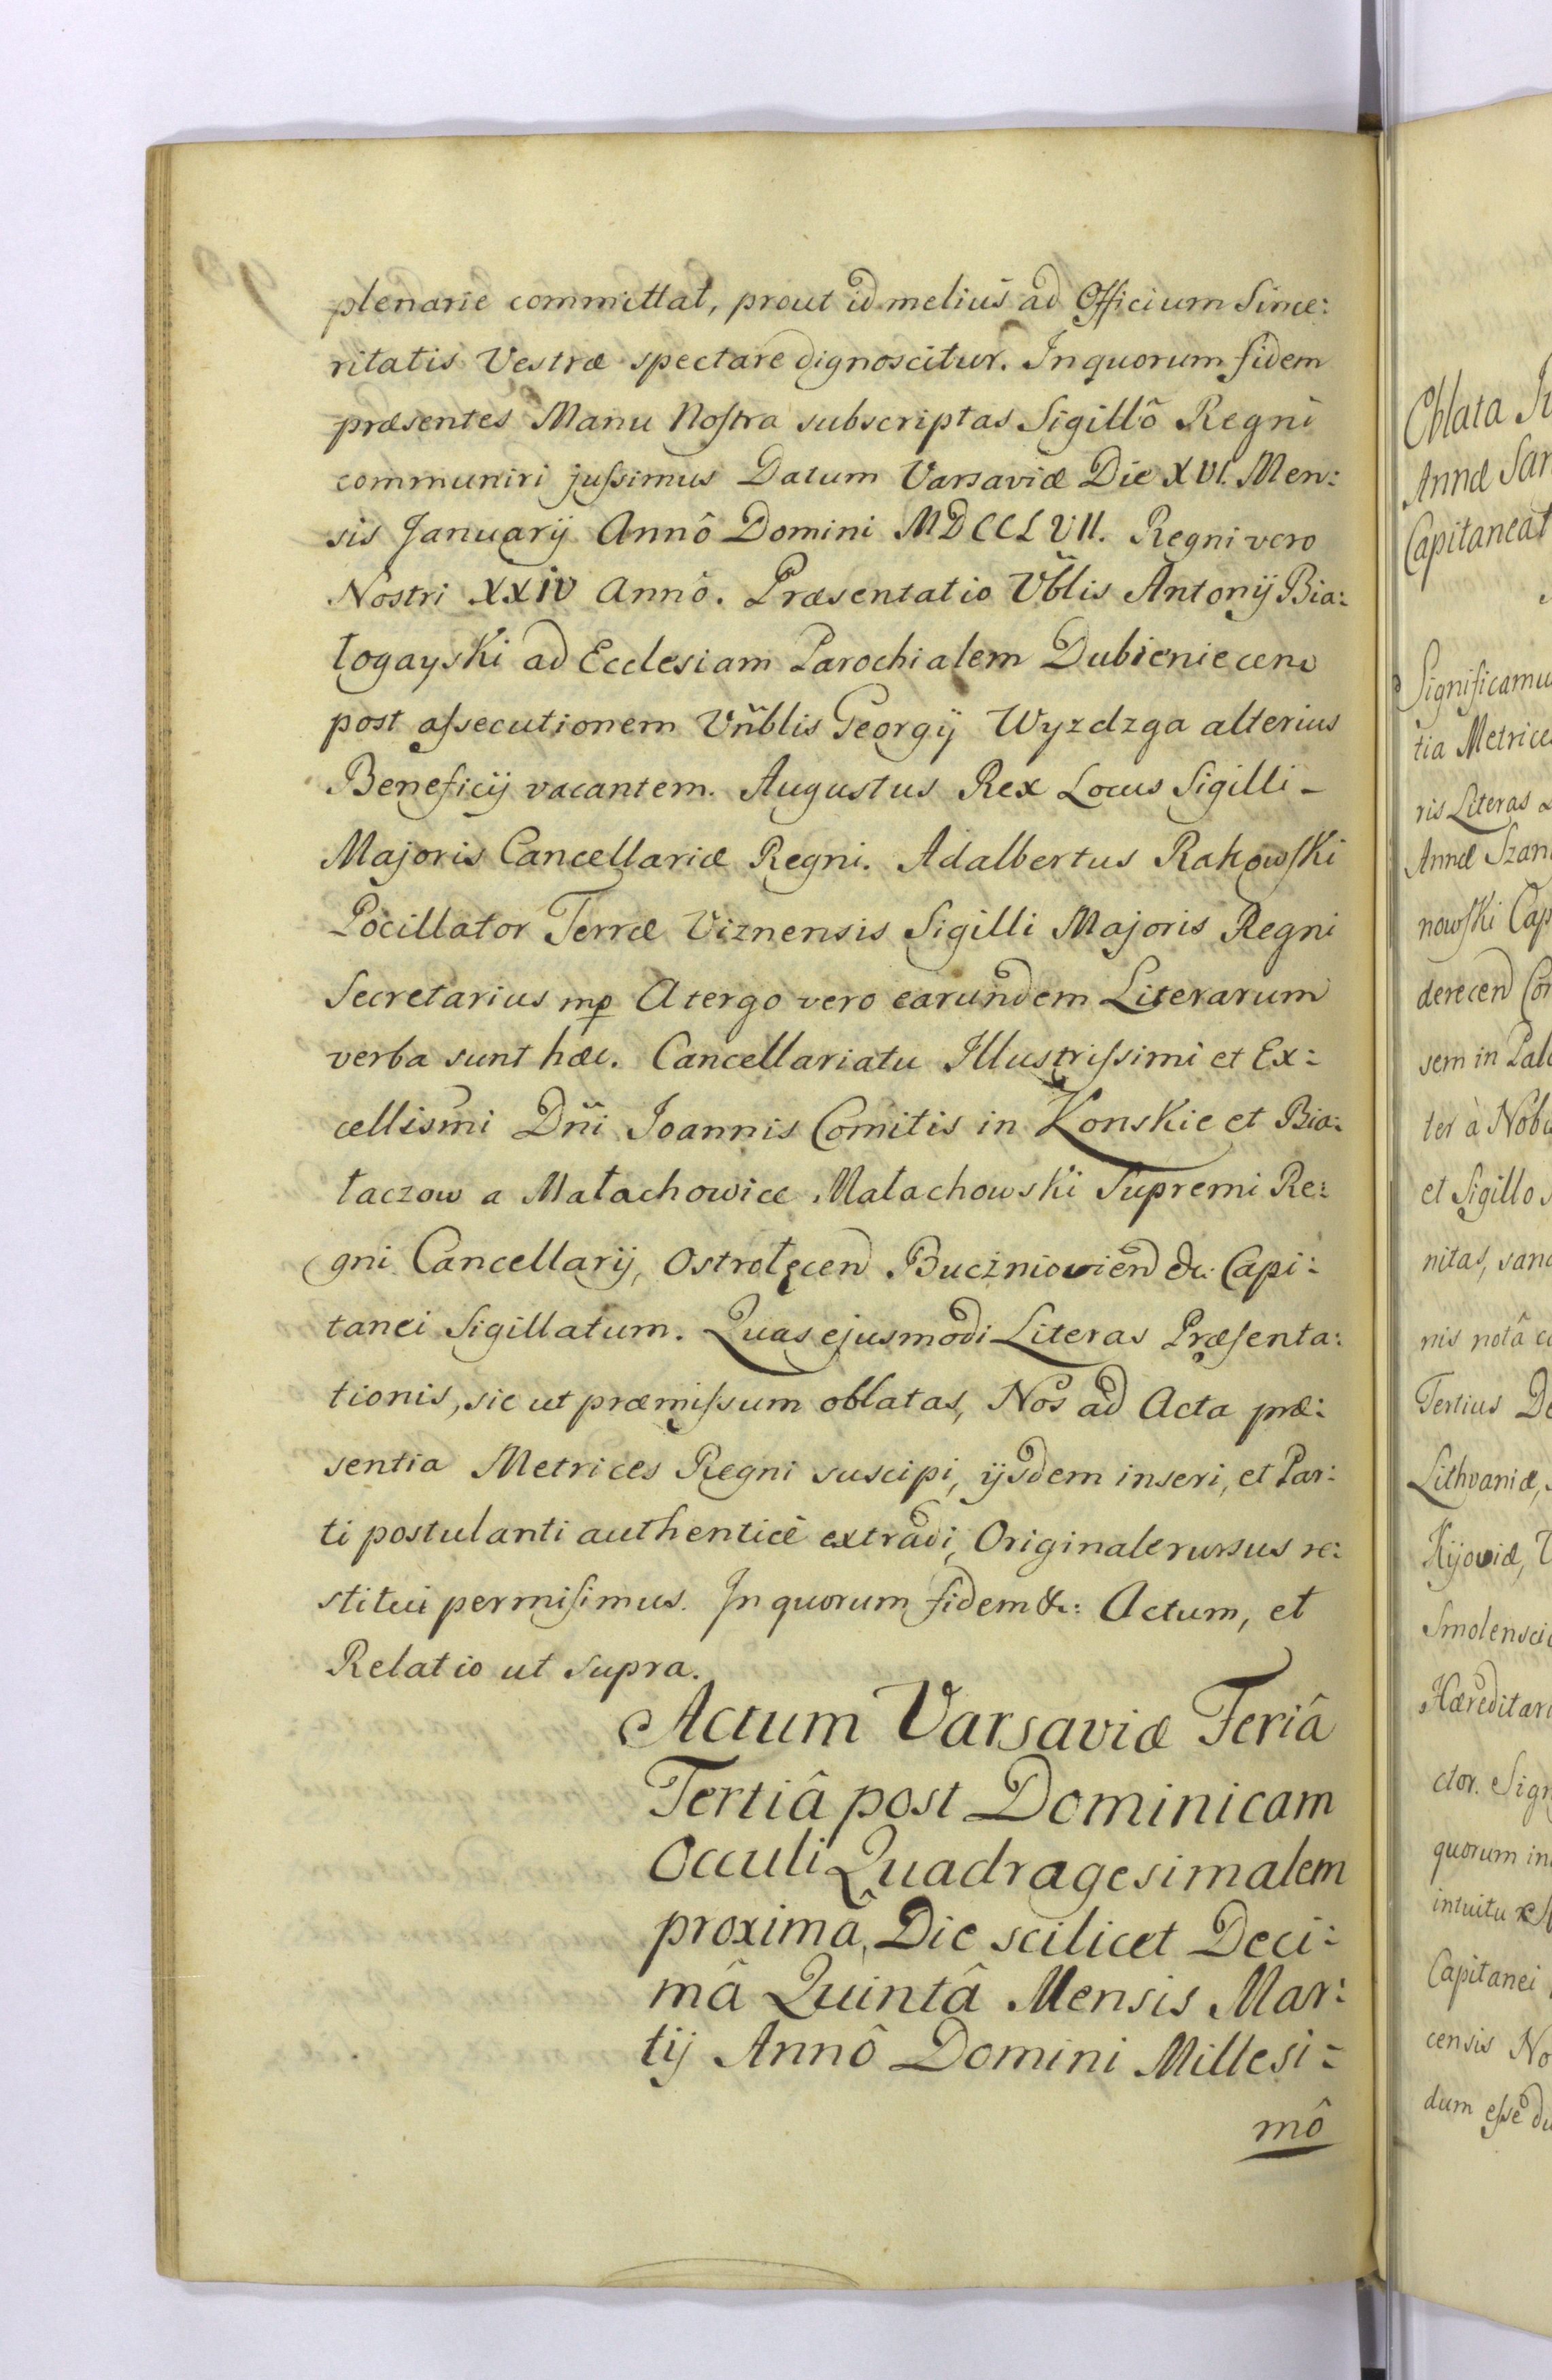 plenarie committat, prout id melius ad Officium Since:
ritatis Vestræ spectare dignoscitur. In quorum fidem
præsentes Manu Nostra subscriptas Sigillô Regni
communiri jussimus Datum Varsaviæ Die XVI. Men:
sis Januarij Annô Domini MDCCLVII. Regni vero
Nostri XXIV Annô. Præsentatio Vblis Antonij Bia:
łogayski ad Ecclesiam Parochialem Dubieniecen
post assecutionem Vnblis Georgij Wyzdzga alterius
Beneficij vacantem. Augustus Rex Locus Sigilli -
Majoris Cancellariæ Regni. Adalbertus Rakowski
Pocillator Terræ Viznensis Sigilli Majoris Regni
Secretarius mp A tergo vero earundem Literarum
verba sunt hæc. Cancellariatu Illustrissimi et Ex:
cellismi Dni Joannis Comitis in Konskie et Bia:
łaczow a Małachowice Małachowski Supremi Re:
gni Cancellarij, Ostrołęcen Buczniowien &c: Capi:
tanei Sigillatum. Quas ejusmodi Literas Præsenta:
tionis, sic ut præmissum oblatas, Nos ad Acta præ:
sentia Metrices Regni suscipi, ijsdem inseri, et Par:
ti postulanti authenticè extradi, Originale rursus re:
stitui permisimus. In quorum fidem &c: Actum, et
Relatio ut supra.
Actum Varsaviæ Feriâ
Tertiâ post Dominicam
Occuli Quadragesimalem
proximâ, Die scilicet Deci:
mâ Quintâ Mensis Mar:
tij Annô Domini Millesi:
mô
Oblata
Annæ
Capitaneat
Significamu
tia Metrice
ris Literas
Annæ Szan
nowski Cap
derecen Con
sem in Pala
ter à Nob
et Sigillo
nitas, sanc
nis notâ
Tertius
Lithvaniæ,
Kijoviæ,
Smolensci
Hæreditari
ctor. Sign
quorum in
intuitu
Capitanei
censis No
dum esse du